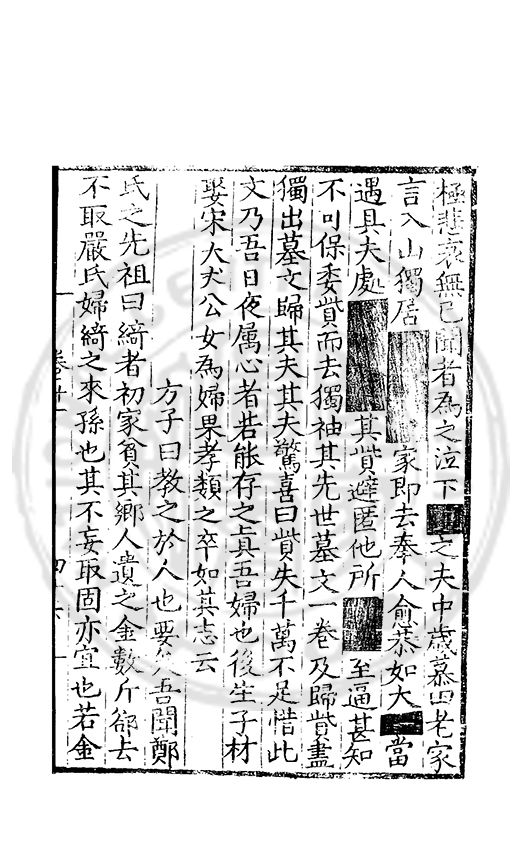 極悲哀無已聞者為之泣下之夫中歲慕田老家
言入山獨居家即去奉人愈恭如大當
遇其夫處其貲避匿他所至逼甚知
不可保委貲而去獨袖其先世墓文一卷及歸貲盡
獨出墓文歸其夫其夫驚喜曰貲失千萬不足惜此
文乃吾日夜属心者若能存之真吾婦也後生子材
娶宋大犬公女為婦果孝類之卒如其志云
方子曰教之於人也要吾聞鄭
氏之先祖曰綺者初家貧其鄉人遺之金數斤郤去
不取嚴氏婦綺之來孫也其不妄取固亦宜也若金
卷廿一